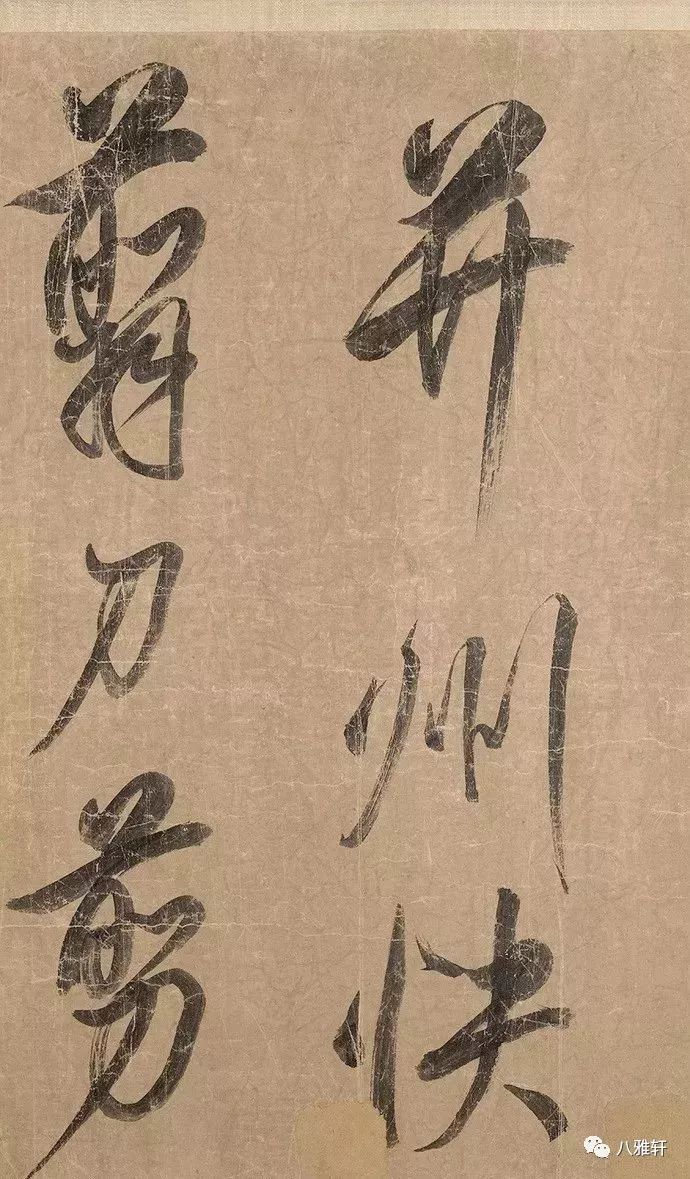 并州快
翦刀剪
八雅轩